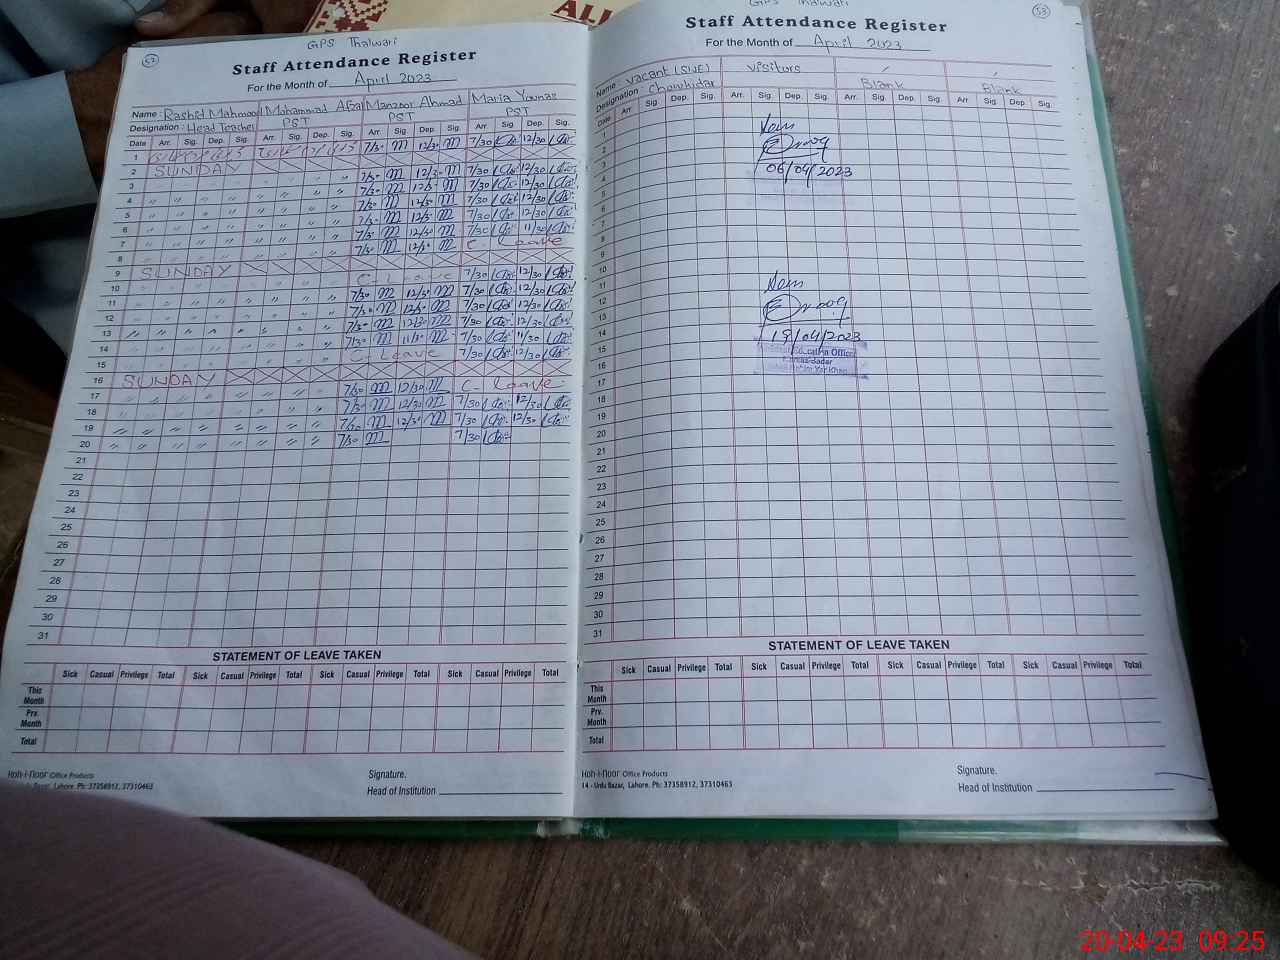 ALL
GPS Thalwari
52
Staff Attendance Register
For the Month of April 2023
Name: Rashid Mahmood Mohammad Afzal Manzoor Ahmad Maria Younas
Designation: Head Teacher PST PST PST
Date Arr. Sig. Dep. Sig. Arr. Sig. Dep. Sig. Arr. Sig Dep. Sig. Arr. Sig Dep. Sig.
1 7/30 m 12/30 m 7/30 12/30
2 SUNDAY
3 7/30 m 12/30 m 7/30 12/30
4 " " " " " " " 7/30 m 12/30 m 7/30 12/30
5 " " " " " " " 7/30 m 12/30 m 7/30 12/30
6 " " " " " " " 7/30 m 12/30 m 7/30 12/30
7 " " " " " " " 7/30 m 12/30 m 7/30 11/30
8 " " " " " " " 7/30 m 12/30 m C. Leave
9 SUNDAY
10 " " " " " " " C. Leave 7/30 12/30
11 " " " " " " " 7/30 m 12/30 m 7/30 12/30
12 " " " " " " " 7/30 m 12/30 m 7/30 12/30
13 " " " " " " " 7/30 m 12/30 m 7/30 12/30
14 " " " " " " " 7/30 m 11/30 m 7/30 11/30
15 " " " " " " " C. Leave 7/30 12/30
16 SUNDAY
17 " " " " " " " 7/30 m 12/30 m C. Leave
18 " " " " " " " 7/30 m 12/30 m 7/30 12/30
19 " " " " " " " 7/30 m 12/30 m 7/30 12/30
20 " " " " " " " 7/30 m 7/30
21
22
23
24
25
26
27
28
29
30
31
STATEMENT OF LEAVE TAKEN
Sick Casual Privilege Total Sick Casual Privilege Total Sick Casual Privilege Total Sick Casual Privilege Total
This Month
Prv. Month
Total
Hoh-i-Noor Office Products
Bazar, Lahore. Ph: 37358912, 37310463
Signature.
Head of Institution
GPS Thalwari
53
Staff Attendance Register
For the Month of April 2023
Name: Vacant (SNE) Visitors / /
Designation: Chowkidar Blank Blank
Date Arr. Sig. Dep. Sig. Arr. Sig. Dep. Sig. Arr. Sig. Dep. Sig. Arr. Sig. Dep. Sig.
1
2
3
06/04/2023
4
5
6
7
8
9
10
11
12
13
14
19/04/2023
15
16
17
18
19
20
21
22
23
24
25
26
27
28
29
30
31
STATEMENT OF LEAVE TAKEN
Sick Casual Privilege Total Sick Casual Privilege Total Sick Casual Privilege Total Sick Casual Privilege Total
This Month
Prv. Month
Total
Hoh-i-Noor Office Products
14 - Urdu Bazar, Lahore. Ph: 37358912, 37310463
Signature.
Head of Institution
20-04-23 09:25